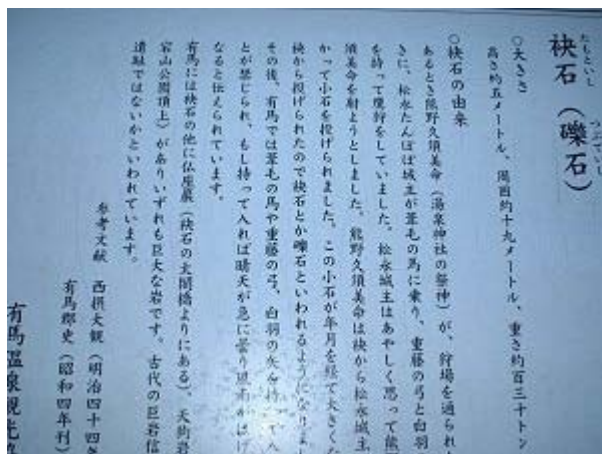 たもといし つぶていし
袂石（礫石）
○大きさ
高さ約五メートル、周囲約十九メートル、重さ約百三十トン
○袂石の由来
あるとき熊野久須美命（湯泉神社の祭神）が、狩場を通られ
きに、松永たんぽぽ城主が葦毛の馬に乗り、重藤の弓と白羽
を持って鷹狩をしていました。松永城主はあやしく思って熊
須美命を射ようとしました。熊野久須美命は袂から松永城主
かって小石を投げられました。この小石が年月を経て大きくな
袂から投げられたので袂石とか礫石といわれるようになりまし
その後、有馬では葦毛の馬や重藤の弓、白羽の矢を持って入
とが禁じられ、もし持って入れば晴天が急に曇り風雨がはげ
なると伝えられています。
有馬には袂石の他に仏座巌（袂石の太閤橋よりにある）、天狗岩
宕山公園頂上）がありいずれも巨大な岩です。古代の巨岩信
遺趾ではないかといわれています。
参考文献 西摂大観（明治四十四年
有馬郡史（昭和四年刊）
有馬温泉観光